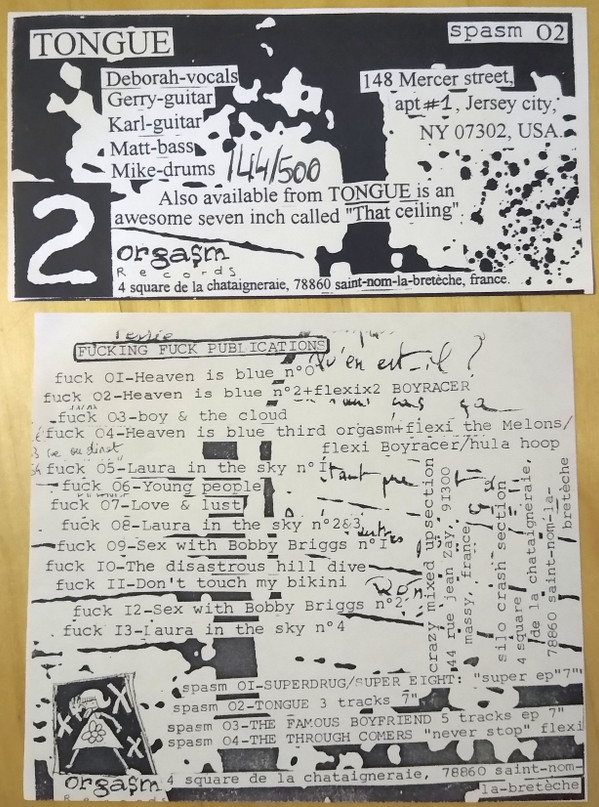 TONGUE
spasm 02
Deborah-vocals
Gerry-guitar
Karl-guitar
Matt-bass
Mike-drums 144/500
148 Mercer street,
apt #1, Jersey city,
NY 07302, USA.
Also available from TONGUE is an
awesome seven inch called "That ceiling"
2
orgasm
Records
4 square de la chataigneraie, 78860 saint-nom-la-bretèche, france.
FUCKING FUCK PUBLICATIONS
Qu'en est-il ?
fuck 01-Heaven is blue n°0
fuck 02-Heaven is blue n°2+flexix2 BOYRACER
fuck 03-boy & the cloud
ça
fuck 04-Heaven is blue third orgasm+flexi the Melons/
flexi Boyracer/hula hoop
fuck 05-Laura in the sky n°I
fuck 06-Young people
fuck 07-Love & lust
fuck 08-Laura in the sky n°2&3
fuck 09-Sex with Bobby Briggs n°I
fuck I0-The disastrous hill dive
fuck II-Don't touch my bikini
fuck I2-Sex with Bobby Briggs n°2
fuck I3-Laura in the sky n°4
crazy mixed upsection
44 rue jean Zay, 9I300
massy, france
silo crash section
4 square
de la chataigneraie,
78860 saint-nom-la-
bretèche
spasm 0I-SUPERDRUG/SUPER EIGHT: "super ep"7"
spasm 02-TONGUE 3 tracks 7"
spasm 03-THE FAMOUS BOYFRIEND 5 tracks ep 7"
spasm 04-THE THROUGH COMERS "never stop" flexi
orgasm
Records
4 square de la chataigneraie, 78860 saint-nom-
la-bretèche